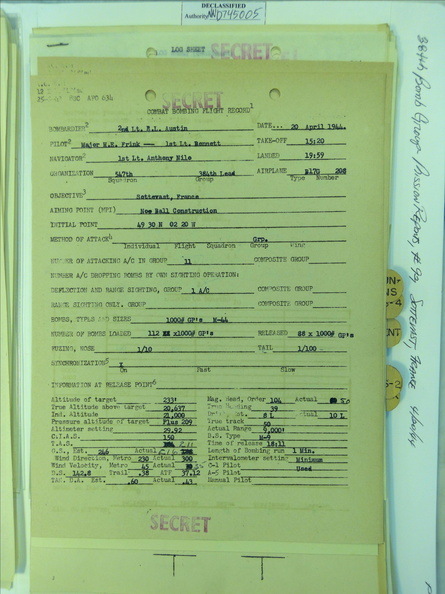 DECLASSIFIED
Authority NND745005
LOG SHEET
SECRET
SECRET
COMBAT BOMBING FLIGHT RECORD1
BOMBARDIER2 2nd Lt. R.L. Austin DATE... 20 April 1944.
PILOT2 Major H.E. Frink — 1st Lt. Bennett TAKE-OFF 15:20
NAVIGATOR2 1st Lt. Anthony Milo LANDED 19:59
ORGANIZATION 547th 384th Lead AIRPLANE B17G 208
Squadron Group Type Number
OBJECTIVE3 Sottevast, France
AIMING POINT (MPI) Noe Ball Construction
INITIAL POINT 49 30 N 02 20 W
METHOD OF ATTACK4 Grp.
Individual Flight Squadron Group Wing
NUMBER OF ATTACKING A/C IN GROUP 11 COMPOSITE GROUP
NUMBER A/C DROPPING BOMBS BY OWN SIGHTING OPERATION:
DEFLECTION AND RANGE SIGHTING, GROUP 1 A/C COMPOSITE GROUP
RANGE SIGHTING ONLY, GROUP COMPOSITE GROUP
BOMBS, TYPES AND SIZES 1000# GP's M-44
NUMBER OF BOMBS LOADED 112 x1000# GP's RELEASED 88 x 1000# GP's
FUZING, NOSE 1/10 TAIL 1/100
SYNCHRONIZATION5 X
On Fast Slow
INFORMATION AT RELEASE POINT6
Altitude of target 233' Mag. Head, Order 104 Actual
True Altitude above target 20,637 39
Ind. Altitude 21,000 8 L 10 L
Pressure altitude of target Plus 209 True track 50
Altimeter setting 29.92 Actual Range 9,000'
C.I.A.S. 150 B.S. Type M-9
T.A.S. 211 Time of release 18:11
G.S., Est. 246 Actual Length of Bombing run 1 Min.
Wind Direction, Metro 230 Actual 300 Intervalometer setting Minimum
Wind Velocity, Metro 45 Actual C-1 Pilot Used
D.S. 142.8 Trail .38 ATF 37.12 A-5 Pilot
TAG. D.A. Est. .60 Actual .43 Manual Pilot
SECRET
384th Bomb Group Mission Reports, #99 Sottevast, France 4/20/44